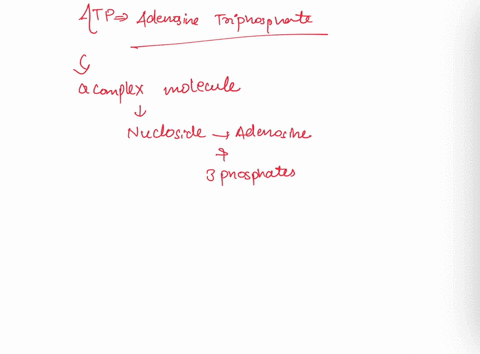 ATP⇒ Adenosine Triphosphate
↳
a complex molecule
↓
Nucloside → Adenosine
+
3 phosphates